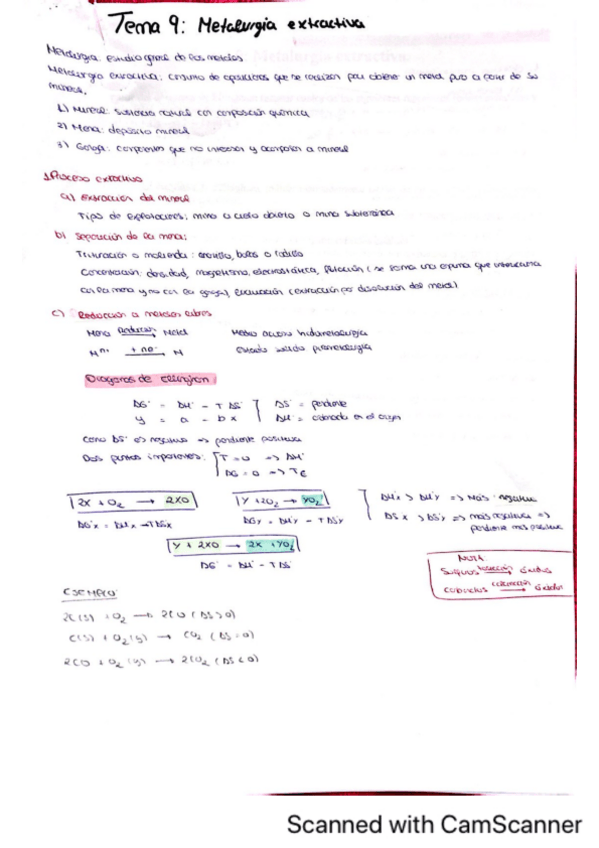 Tema 9: Metalurgia extractiva
Metalurgia: estudio general de los metales
Metalurgia extractiva: conjunto de operaciones que se realizan para obtener un metal puro a partir de su
mineral.
1) Mineral: sustancia natural con composición química
2) Mena: depósito mineral
3) Ganga: componentes que no interesan y acompañan a mineral
1. Proceso extractivo
a) extracción del mineral
Tipo de explotaciones: mina a cielo abierto o mina subterránea
b) separación de la mena:
Trituración o molienda: bolas o rodillo
Concentración: densidad, magnetismo, electrostática, flotación (se forma una espuma que interacciona
con la mena y no con la ganga), (extracción por disolución del metal)
c) Reducción a metales libres
Mena reducción → Metal
Medio acuoso hidrometalurgia
Mⁿ⁺ + ne⁻ → M
Estado solido pirometalurgia
Diagramas de ellingham
ΔG° = ΔH° - TΔS°
ΔS° = pendiente
y = a - bx
ΔH° = ordenada en el origen
Como ΔS° es negativo => pendiente positiva
Dos puntos importantes:
T = 0 => ΔH°
ΔG = 0 => TE
2X + O₂ → 2XO
Y + O₂ → YO₂
ΔH°x > ΔH°y => Más negativa
ΔG°x = ΔHx - TΔSx
ΔGy = ΔH°y - TΔS°y
ΔSx > ΔS°y => más negativa =>
pendiente más positiva
Y + 2XO → 2X + YO₂
ΔG° = ΔH° - TΔS°
NOTA
Sulfuros tostación → óxidos
calcinación → óxidos
EJEMPLO
2C(s) + O₂ → 2CO (ΔS>0)
C(s) + O₂(g) → CO₂ (ΔS=0)
2CO + O₂(g) → 2CO₂ (ΔS<0)
Scanned with CamScanner